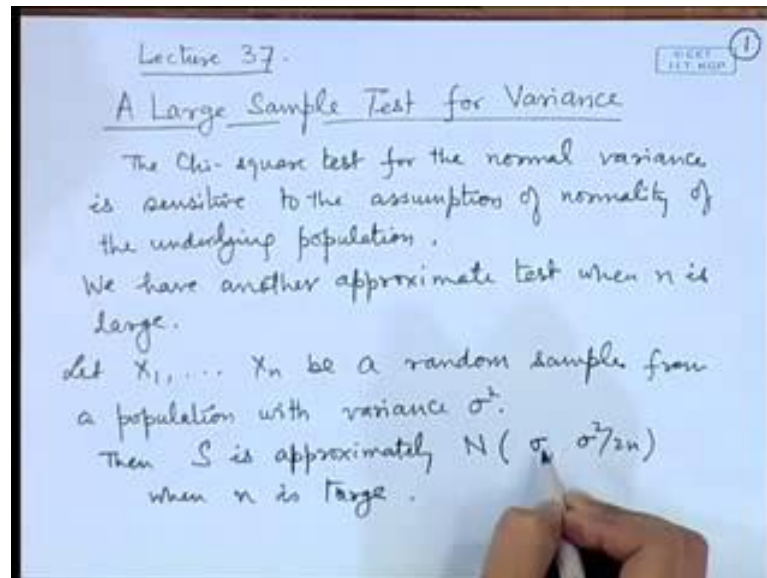 Lecture 37.
1
I.I.T. KGP
A Large Sample Test for Variance
The Chi-square test for the normal variance
is sensitive to the assumption of normality of
the underlying population.
We have another approximate test when n is
large.
Let X1, ... Xn be a random sample from
a population with variance σ².
Then S is approximately N ( σ, σ²/2n)
when n is large.